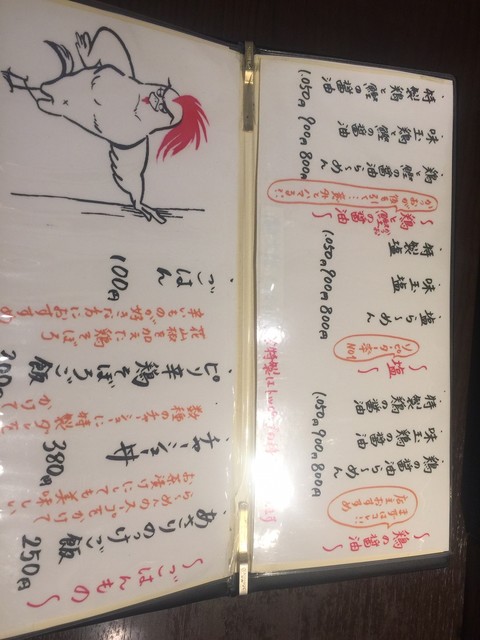 〜鶏の醤油〜
まずはコレ!!
店主おすすめ
鶏の醤油らーめん 800円
味玉鶏の醤油 900円
特製鶏の醤油 1.050円
〜塩〜
リピーター率
NO1
塩らーめん 800円
味玉塩 900円
特製塩 1.050円
〜鶏と鰹の醤油〜
鶏と鰹の醤油らーめん 800円
味玉鶏と鰹の醤油 900円
特製鶏と鰹の醤油 1.050円
〜ごはんもの〜
あさりのっけご飯 250円
らーめんのスープをかけて
お茶漬けにしても美味しい
チャーシュー丼 380円
数種のチャーシューに特製ダレを
かけて
ピリ辛鶏そぼろご飯
花山椒を加えた鶏そぼろ
辛いものが好きな方におすすめ
ごはん 100円